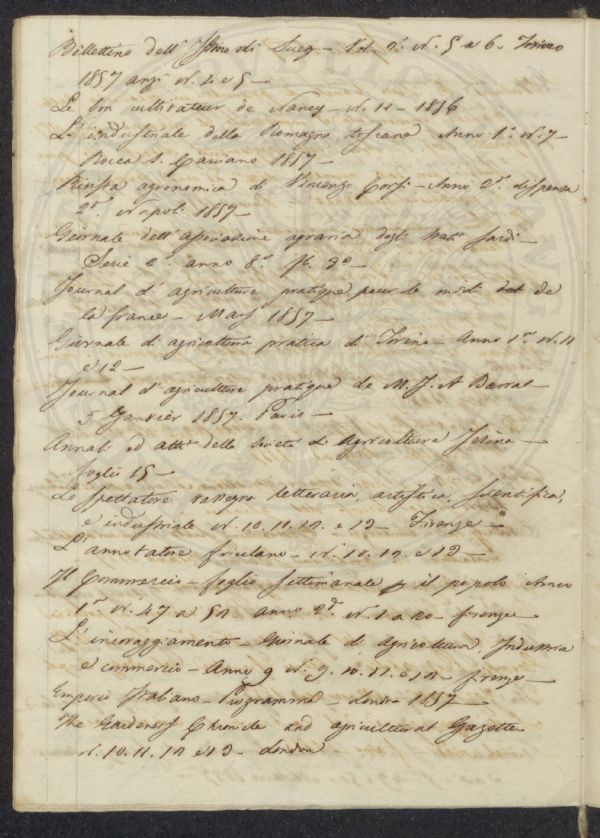 Billettino dell' Istmo di Suez - Vol. 2. N. 5 e 6. Torino
1857 anzi N. 4 e 5 -
Le bon cultivateur de Nancy - N. 11 - 1856
L'industriale della Romagna toscana Anno 1.° N. 7 -
Rocca S. Casciano 1857 -
Rivista agronomica di Vincenzo Corsi - Anno 2.° dispensa
2.ª Napoli 1857 -
Giornale dell'associazione agraria degli Stati Sardi -
Serie 2.ª anno 8.°
Journal d'agriculture pratique pour le midi de
la france - Mars 1857 -
Giornale di agricoltura pratica di Torino - Anno 1.° N. 11
e 12 -
Journal d'agriculture pratique de M. J. A Barral -
5 Janvier 1857. Paris -
Annali ed atti della Società di Agricoltura Jesina -
foglio 15 -
Lo spettatore rassegna letteraria, artistica, scientifica,
e industriale N. 10. 11. 12. e 13 - Firenze -
L'annotatore friulano - N. 10. 12. e 13 -
Il Commercio - foglio settimanale p il popolo Anno
1.° N. 47 a 52 anno 2.° N. 1 a 20 - firenze
L'incoraggiamento - Giornale di Agricoltura, Industria
e commercio - Anno 9 N. 9. 10. 11. e 12 - firenze -
Emporio Italiano - Programma - Londra 1857 -
The Gardeners Chronicle and agricultural Gazette
N. 10. 11. 12 e 13 - London